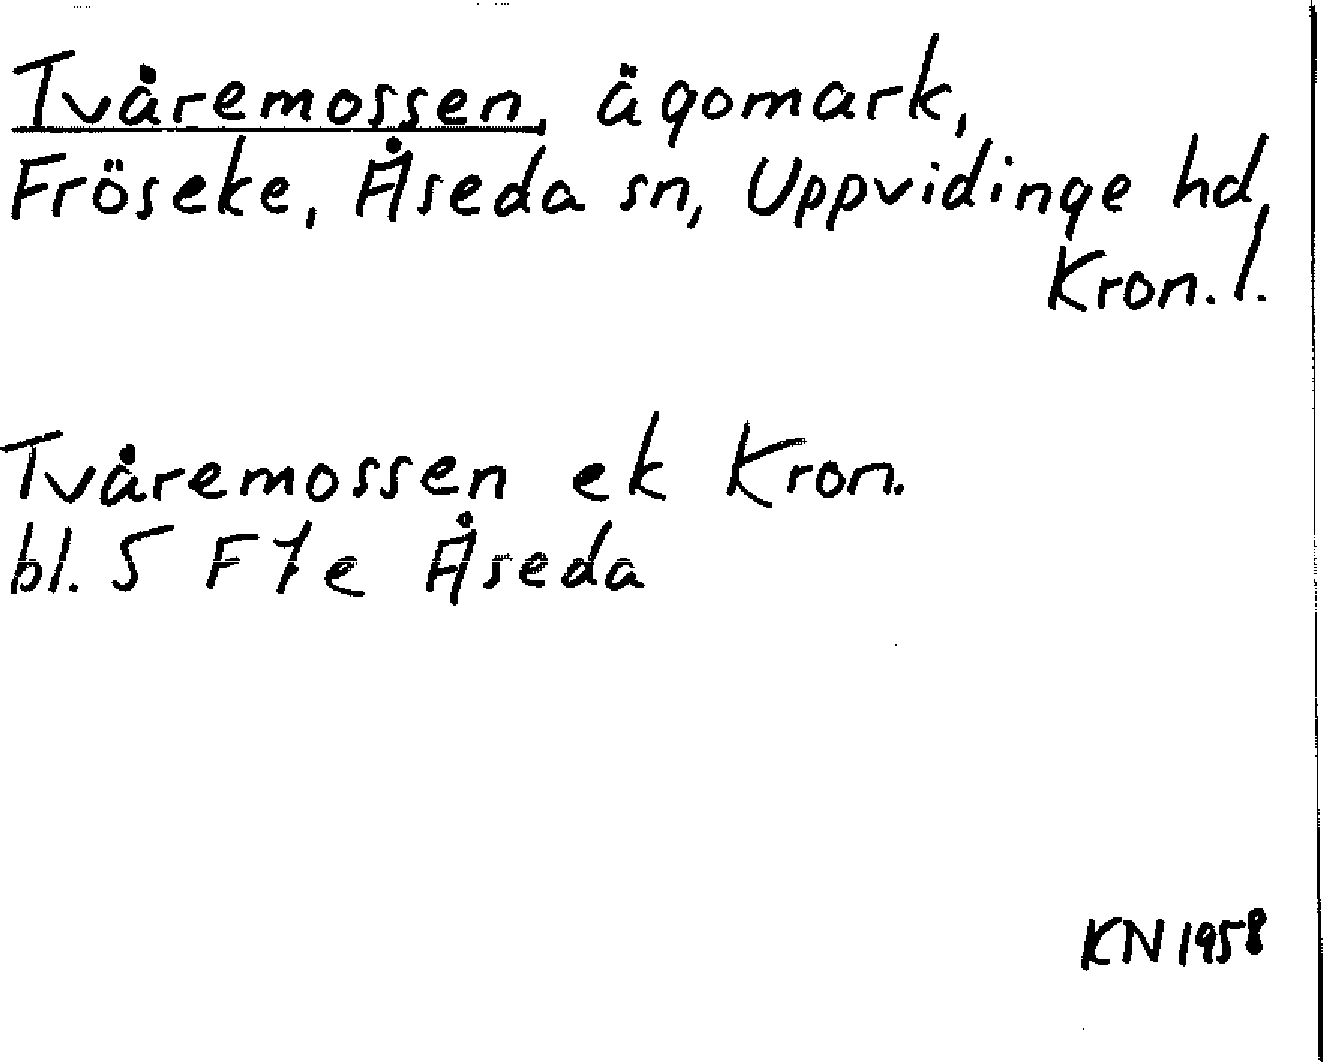 Tvåremossen, ägomark,
Fröseke, Åseda sn, Uppvidinge hd,
Kron. l.
Tvåremossen ek Kron.
bl. 5 F 7 e Åseda
KN 1958